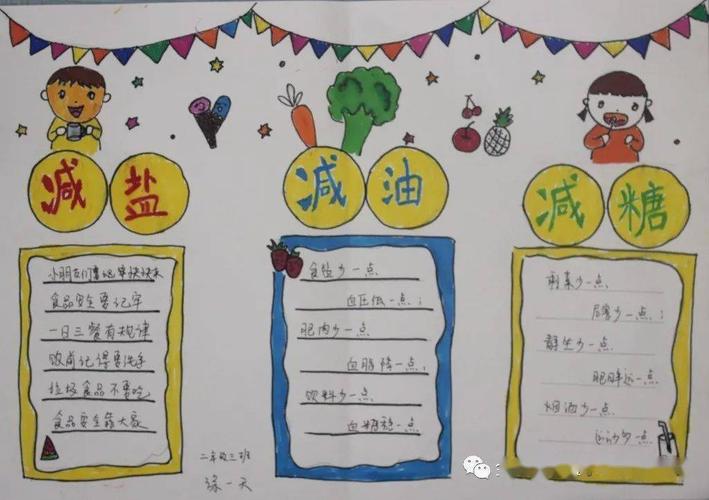 减盐
减油
减糖
食品安全要记牢
一日三餐有规律
饭前记得要洗手
垃圾食品不要吃
食品安全靠大家
食盐少一点
血压低一点；
肥肉少一点
血脂降一点；
饮料少一点
血糖稳一点
危害少一点；
肥胖远一点
烟酒少一点
运动多一点
二年级三班
涂一天